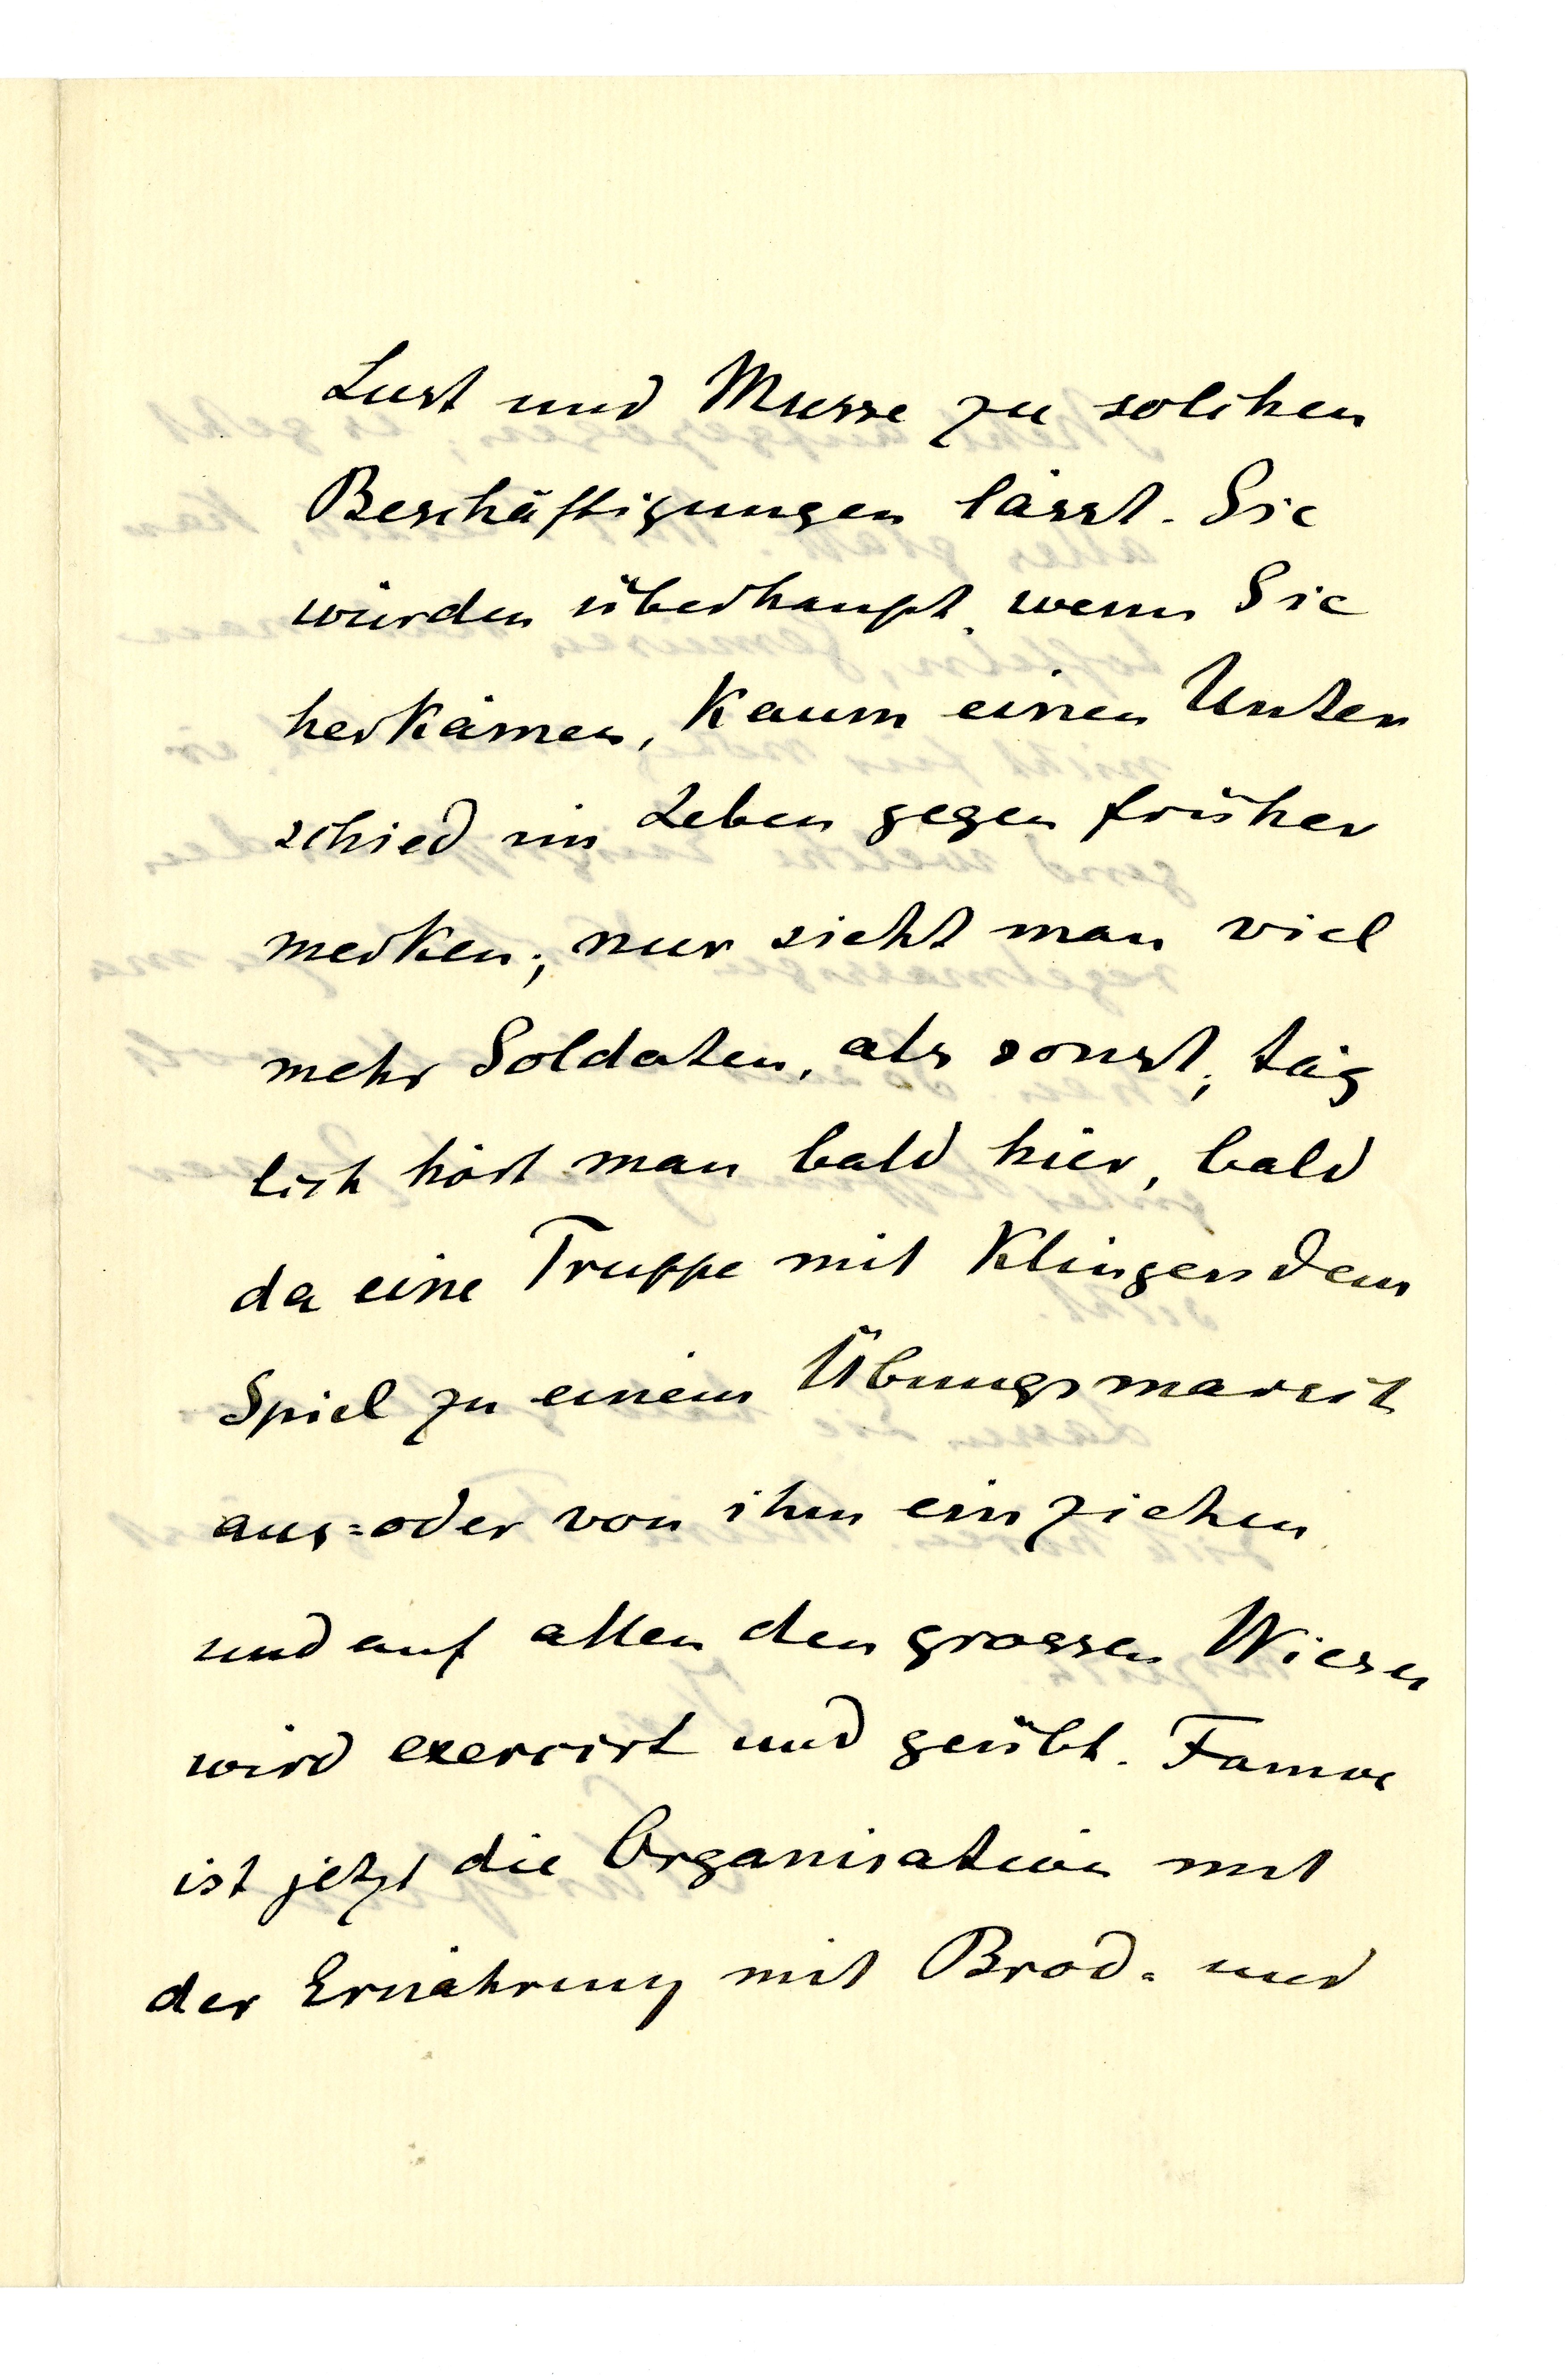 Lust und Musse zu solchen
Beschäftigungen lässt. Sie
würden überhaupt, wenn Sie
herkämen, kaum einen Unter
schied im Leben gegen früher
merken; nur sieht man viel
mehr Soldaten, als sonst; täg
lich hört man bald hier, bald
da eine Truppe mit klingendem
Spiel zu einem Übungsmarsch
aus= oder von ihm einziehen
und auf allen den grossen Wiesen
wird exercirt und geübt. Famos
ist jetzt die Organisation mit
der Ernährung mit Brod= und